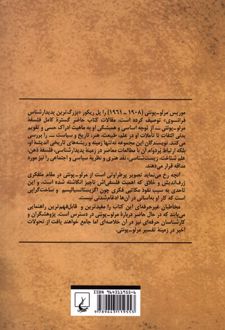 موریس مرلو-پونتی (۱۹۰۸ - ۱۹۶۱) را پل ریکور «بزرگ‌ترین پدیدارشناس
فرانسوی» توصیف کرده است. مقالات کتاب حاضر گسترهٔ کامل فلسفهٔ
مرلو-پونتی — از توجه اساسی و همیشگی او به ماهیت ادراک حسی و تقویم
بدنی التفات تا تأملات او در علم، طبیعت، هنر، تاریخ و سیاست — را بررسی
می‌کنند. نویسندگان این مجموعه نه‌تنها زمینه و ریشه‌های تاریخی اندیشهٔ او،
بلکه ارتباط پردوام آن با مطالعات معاصر در زمینهٔ پدیدارشناسی، فلسفهٔ ذهن،
علم شناخت، زیست‌شناسی، نقد هنری و نظریهٔ سیاسی و اجتماعی را نیز مورد
مداقه قرار می‌دهند.
آنچه رخ می‌نماید تصویر پرطراوتی است از مرلو-پونتی در مقام متفکری
ژرف‌اندیش و خلاق که اهمیت فلسفی‌اش ناچیز انگاشته شده است، و این
تا حدی به سبب نفوذ مکاتبی فکری چون اگزیستانسیالیسم و ساخت‌گرایی
است که کار او به‌آسانی در آن‌ها ادغام‌شدنی نیست.
مخاطبان غیرحرفه‌ای این کتاب را مفیدترین و قابل‌فهم‌ترین راهنمایی
می‌یابند که در حال حاضر دربارهٔ مرلو-پونتی در دسترس است. پژوهشگران و
کارشناسان حرفه‌ای نیز در آن خلاصه‌ای اما جامع خواهند یافت از تحولات
اخیر در زمینهٔ تفسیر مرلو-پونتی.